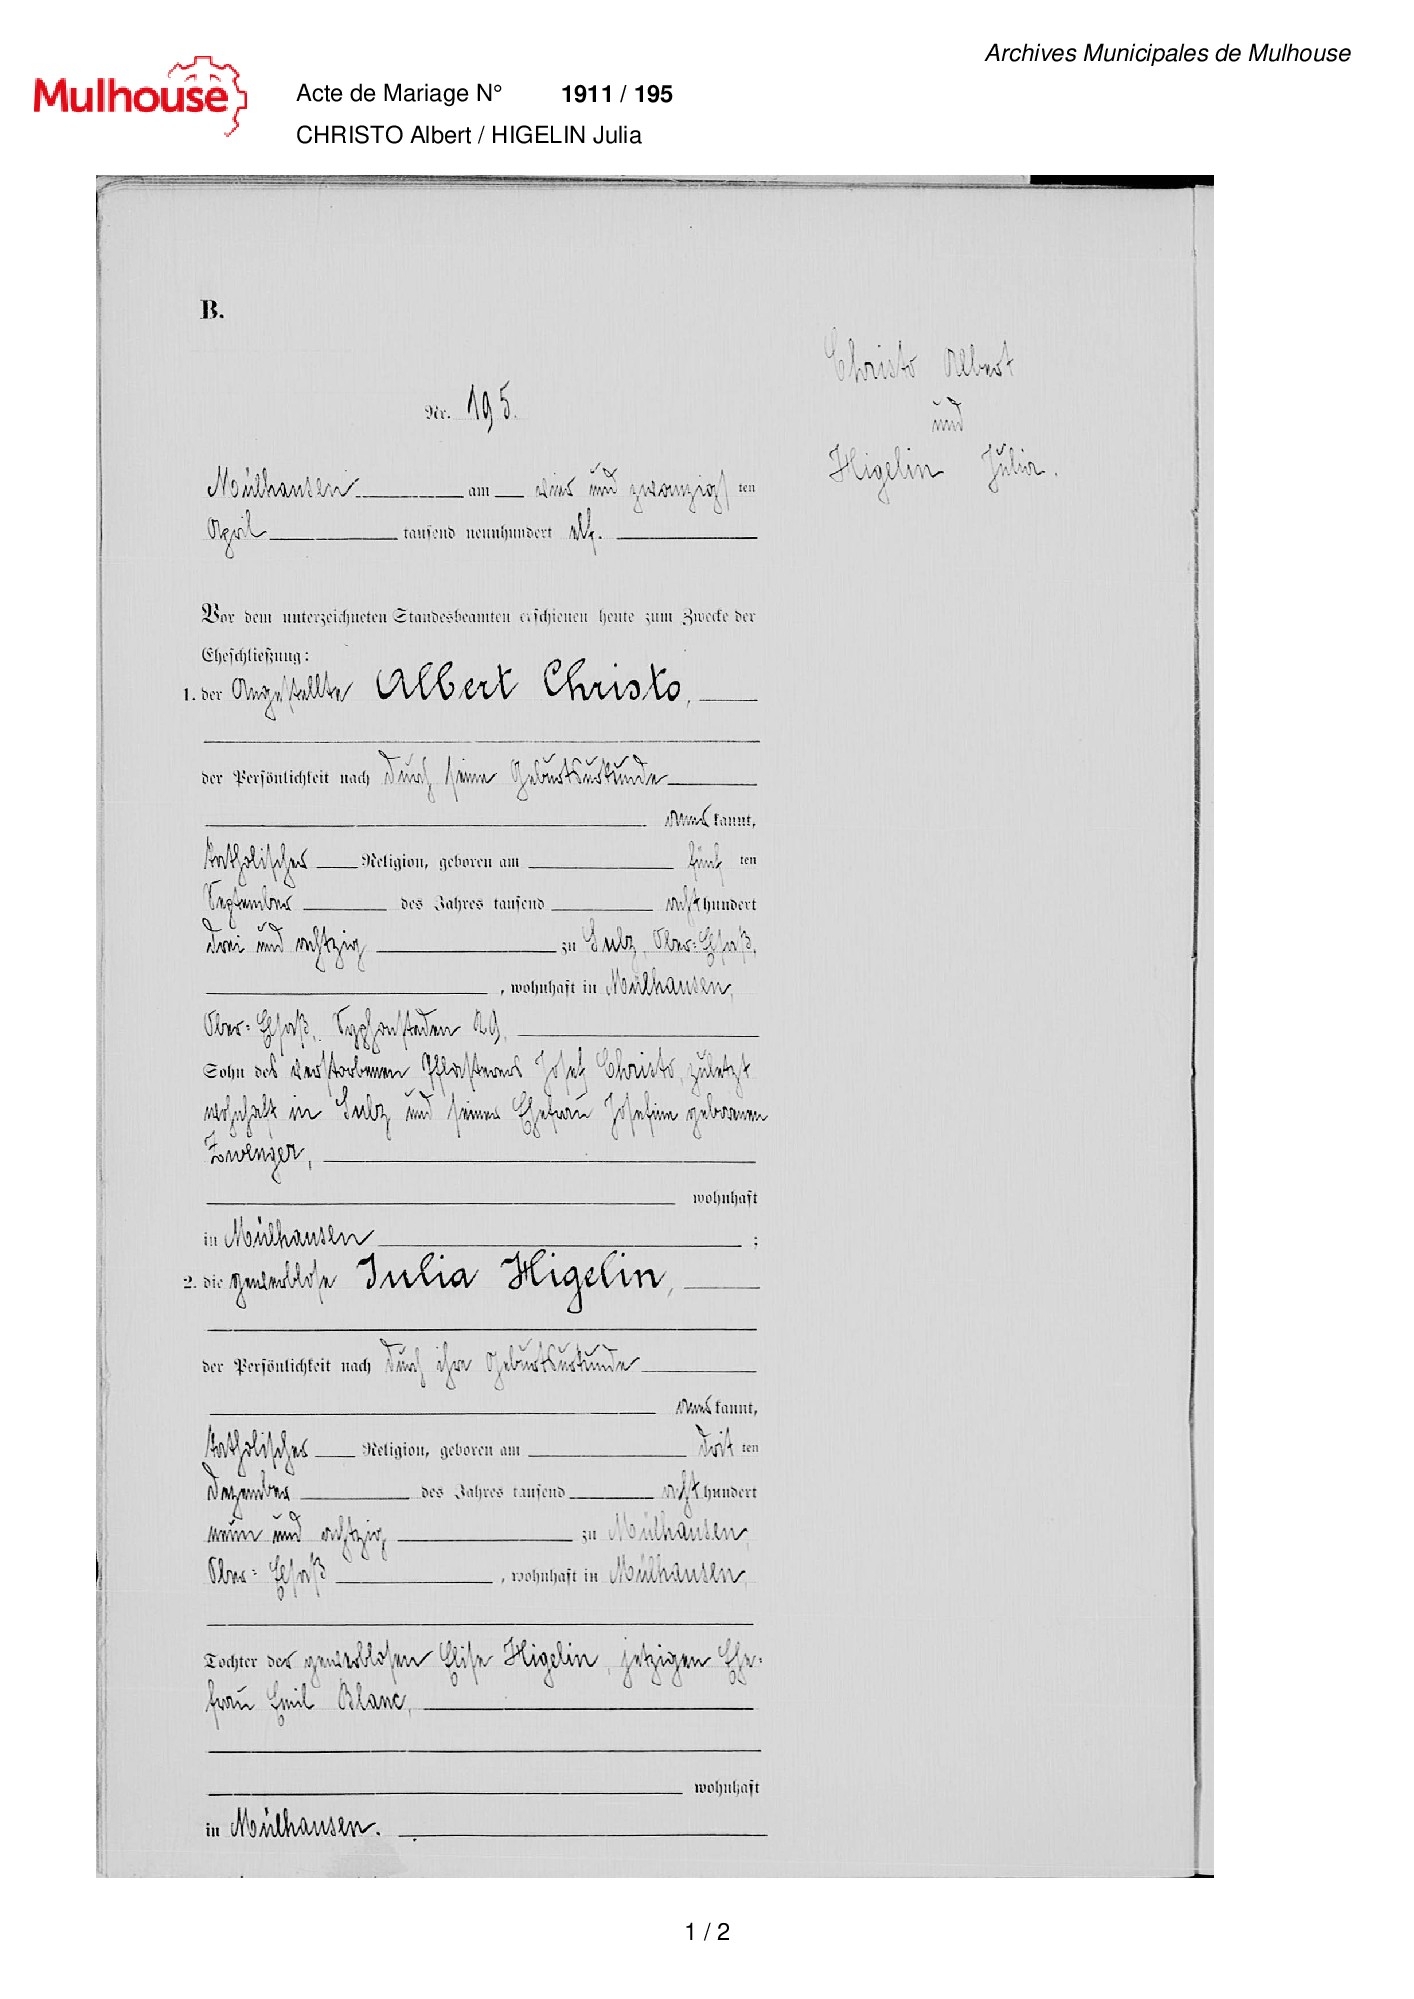 Archives Municipales de Mulhouse
Mulhouse
Acte de Mariage N° 1911 / 195
CHRISTO Albert / HIGELIN Julia
B.
Christo Albert
und
Higelin Julia.
Nr. 195.
Mülhausen am vier und zwanzigsten
April tausend neunhundert elf.
Vor dem unterzeichneten Standesbeamten erschienen heute zum Zwecke der
Eheschließung:
1. der Angestellte Albert Christo,
der Persönlichkeit nach durch seine Geburtsurkunde
anerkannt,
katholischer Religion, geboren am fünften
September des Jahres tausend achthundert
drei und achtzig zu Sulz, Ober-Elsaß,
, wohnhaft in Mülhausen,
Ober-Elsaß, 29,
Sohn des verstorbenen Pflasterers Josef Christo, zuletzt
wohnhaft in Sulz und seiner Ehefrau Josefine geborenen
Zwenger,
wohnhaft
in Mülhausen ;
2. die gewerblose Julia Higelin,
der Persönlichkeit nach durch ihre Geburtsurkunde
anerkannt,
katholischer Religion, geboren am dritten
Dezember des Jahres tausend achthundert
neun und achtzig zu Mülhausen,
Ober-Elsaß , wohnhaft in Mülhausen,
Tochter der gewerblosen Elise Higelin, jetzigen Ehe-
frau Emil Blanc,
wohnhaft
in Mülhausen.
1 / 2